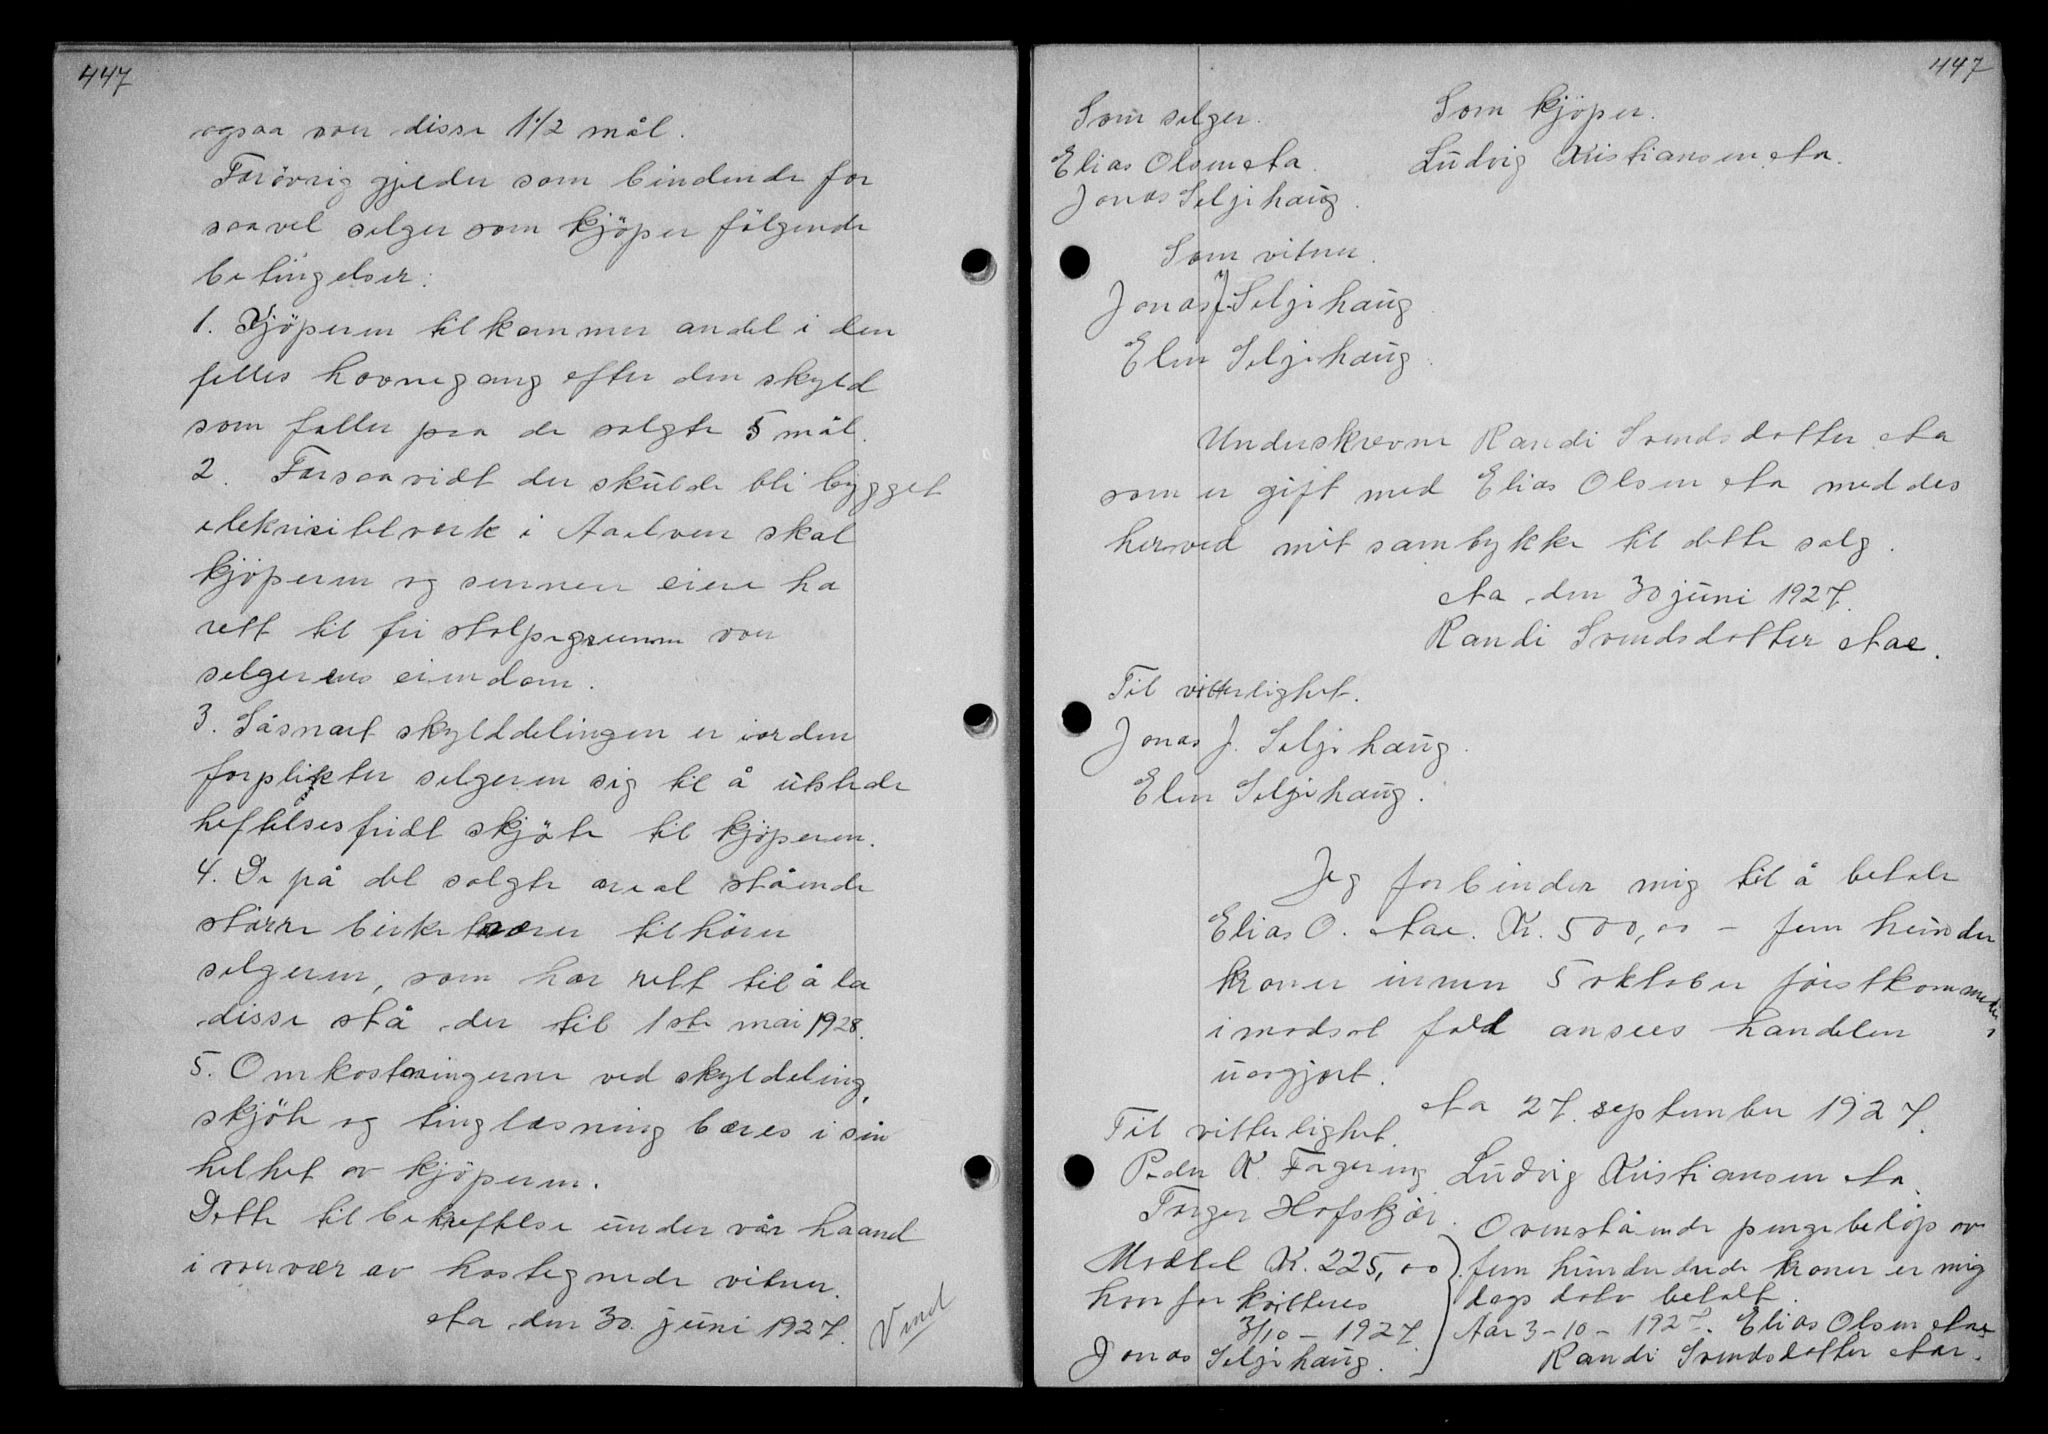 447
ogsaa over disse 1 1/2 mål.
Forövrig gjelder som bindende for
saavel selger som kjöper fölgende
betingelser:
1. Kjöperen tilkommer andel i den
felles havnegang efter den skyld
som faller paa de solgte 5 mål.
2. Forsaavidt der skulde bli bygget
elekrisitetverk i Aaelven skal
kjöperen og senere eiere ha
rett til fri stolpegrunn over
selgerens eiendom.
3. Såsnart skylddelingen er iorden
forplikter selgeren sig til å utstede
heftelsesfridt skjöte til kjöperen.
4. De på det solgte areal stående
större birketrær tilhörer
selgeren, som har rett til å la
disse stå der til 1ste mai 1928.
5. Omkostningerne ved skyldeling,
skjöte og tinglæsning bæres i sin
helhet av kjöperen.
Dette til bekreftelse under vår haand
i overvær av hostegnede vitner.
Aa den 30. juni 1927.
Vend
447
Som selger.
Elias Olsen Aa.
Jonas Seljehaug.
Som kjöper.
Ludvig Kristiansen Aa.
Som vitner.
Jonas J. Seljehaug
Elen Seljehaug.
Underskrevne Randi Svendsdatter Aa
som er gift med Elias Olsen Aa meddes
herved mit samtykke til dette salg.
Aa den 30 juni 1927.
Randi Svendsdatter Aae.
Til vitterlighet.
Jonas J. Seljehaug.
Elen Seljehaug.
Jeg forbinder mig til å betale
Elias O. Aae. Kr. 500,00 – fem hunder
kroner innen 5 oktober förstkommende,
i modsat fald ansees handelen
uavgjort.
Aa 27. september 1927.
Til vitterlighet.
Peder K. Forgering
Torger Hofskjær.
Ludvig Kristiansen Aa.
Mottat Kr. 225,00
hvorfor kvitteres
3/10 – 1927.
Jonas Seljehaug.
Ovenstående pengebelöp av
fem hunderdrede kroner er mig
dags dato betalt.
Aae 3-10- 1927. Elias Olsen Aae
Randi Svendsdatter Aae.